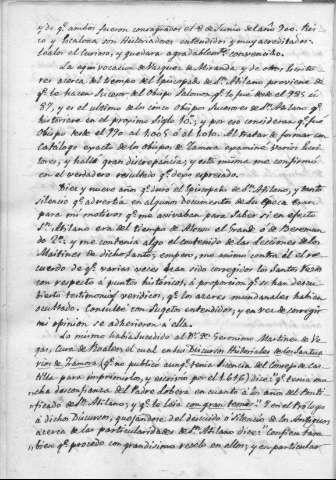 y de q.e ambos fueron consagrados el 8 de Junio de l año 900. Ris-
co y Escalona son Historiadores entendidos y muy acreditados:
lealos el curioso, y quedara agradablem.te convencido.
La equivocacion de Vazquez de Miranda y de otros Escrito-
res acerca del tiempo del Episcopado de S.n Atilano proviene de
q.e lo hacen Sucesor del Obispo Salomon q.e lo fue desde el 985 al
87, y es el ultimo de los cinco Obispos Sucesores de S.n Atilano q.e
hubieron en el proximo siglo 10.º; y por eso consideran q.e fue
Obispo desde el 990 al 1.005 ó al 1010. Al tratar de formar un
Catálogo exacto de los Obispos de Zamora examiné varios Escri-
tores, y hallé gran discrepancia; y esta misma me confirmó
en el verdadero resultado q.e dejo espresado.
Diez y nueve años q.e duró el Episcopado de S.n Atilano, y tanto
silencio q.e advertia en algunos documentos de su Epoca eran
para mi motivos q.e me avivaban para saber si en efecto
S.n Atilano era del tiempo de Alonso el Grande ó de Bermudo
do 2.º; y me contenia algo el contenido de las Lecciones de los
Maitines de dicho Santo; empero, me animó contra él el re-
cuerdo de q.e varias veces han sido corregidos los Santos Rezos
con respecto á puntos históricos, á proporcion q.e se han descu-
bierto testimonios veridicos, q.e los azares mundanales habian
ocultado. Consulté con Sugetos entendidos, y en vez de corregir
mi opinion se adhirieron á ella.
Lo mismo habia sucedido al D.r D. Geronimo Martinez de Ve-
gas, Cura de Bualon el cual en los Discursos Historiales de los Santua-
rios de Zamora (q.e no publicó aunq.e tenia licencia del Consejo de Cas-
tilla para imprimirlos, y escrivio por el 1616) dice: q.e tenia mu-
cha desconfianza del Padre Lobera en cuanto á los años del Ponti-
ficado de S.n Atilano, y q.e lo leia con gran temor. Y en el Prólogo
á dichos Discursos, quejandose del descuido ó silencio de los Antiguos
acerca de las particularidades de S.n Atilano dice: Confieso tam-
bien q.e procedo con grandisimo recelo en ellos; y en particular